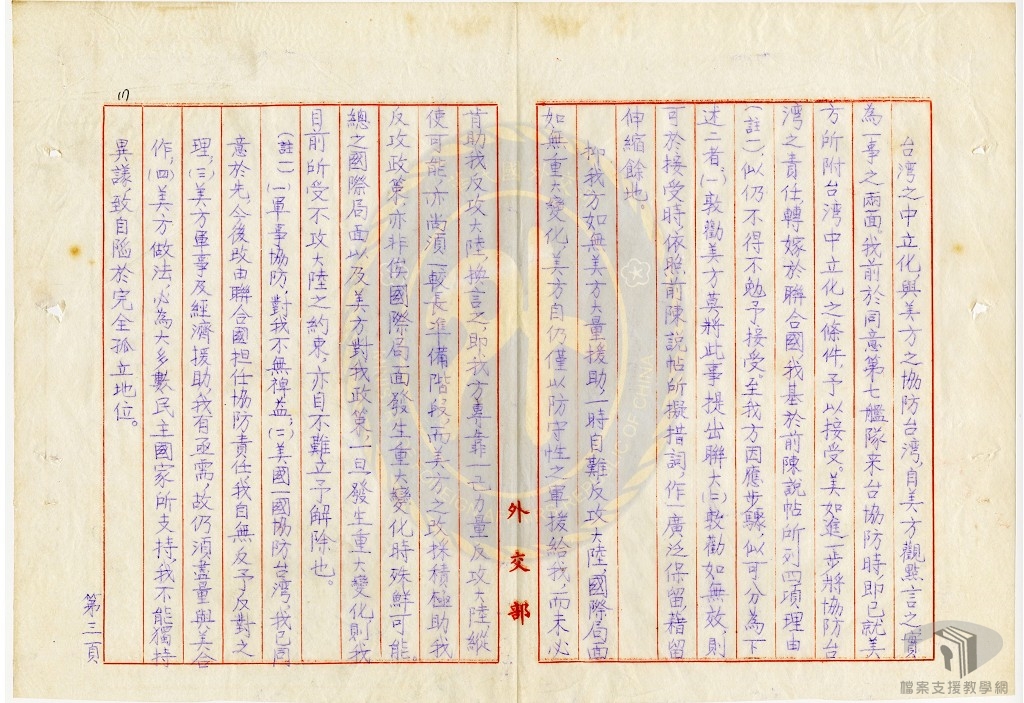 台湾之中立化，與美方之協防台湾，自美方觀點言之，實
為一事之兩面。我前於同意第七艦隊来台協防時，即已就美
方所附台湾中立化之條件，予以接受。美如進一步將協防台
湾之責任，轉嫁於聯合國，我基於前陳說帖所列四項理由
(註二)，似仍不得不勉予接受。至我方因應步驟，似可分為下
述二者：(一)敦勸美方莫將此事提出聯大(二)敦勸如無效，則
可於接受時，依照前陳說帖所擬措詞，作一廣泛保留，藉留
伸縮餘地。
抑我方如無美方大量援助，一時自難反攻大陸，國際局面
如無重大變化，美方自仍僅以防守性之軍援給我，而未必
外交部
肯助我反攻大陸換言之，即我方專靠一己力量反攻大陸，縱
使可能，亦尚須一較長準備階段，而美方之改採積極助我
反攻政策，亦非俟國際局面發生重大變化時，殊鮮可能。
總之國際局面以及美方對我政策，一旦發生重大變化，則我
目前所受不攻大陸之約束，亦自不難立予解除也。
(註二)(一)軍事協防，對我不無裨益，(二)美國一國協防台湾，我已同
意於先，今後改由聯合國担任協防責任，我自無反予反對之
理，(三)美方軍事及經濟援助，我有亟需，故仍須盡量與美合
作，(四)美方做法，必為大多數民主國家所支持，我不能獨持
異議，致自陷於完全孤立地位。
(7)
第三頁
檔案支援教學網